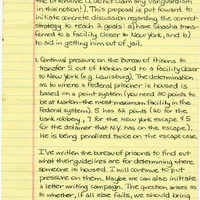 the offensive (I do not claim any vanguardism
in this notion!). This proposal is put forward to
initiate concrete discussion regarding the correct
strategy to reach 2 goals: a) have Sundiata trans-
ferred to a facility closer to New York, and b)
to aid in getting him out of jail.
1. Continual pressure on the Bureau of Prisons to
transfer S out of Marion and to a facility closer
to New York (e.g. Lewisburg). The determination
as to where a Federal prisoner is housed is
based on a point system (you need 20 points to
be at Marion - the most maximum facility in the
federal system). S has 24 points (10 for the
bank robbery, 7 for the New York escape + 5
for the detainer that N.Y. has on the escape).
He is being penalized twice on the escape case.
I've written the bureau of prisons to find out
what their guidelines are for determining where
someone is housed. I will continue to put
pressure on them. Maybe we can also initiate
a letter writing campaign. The question arises as
to whether, if all else fails, we should bring